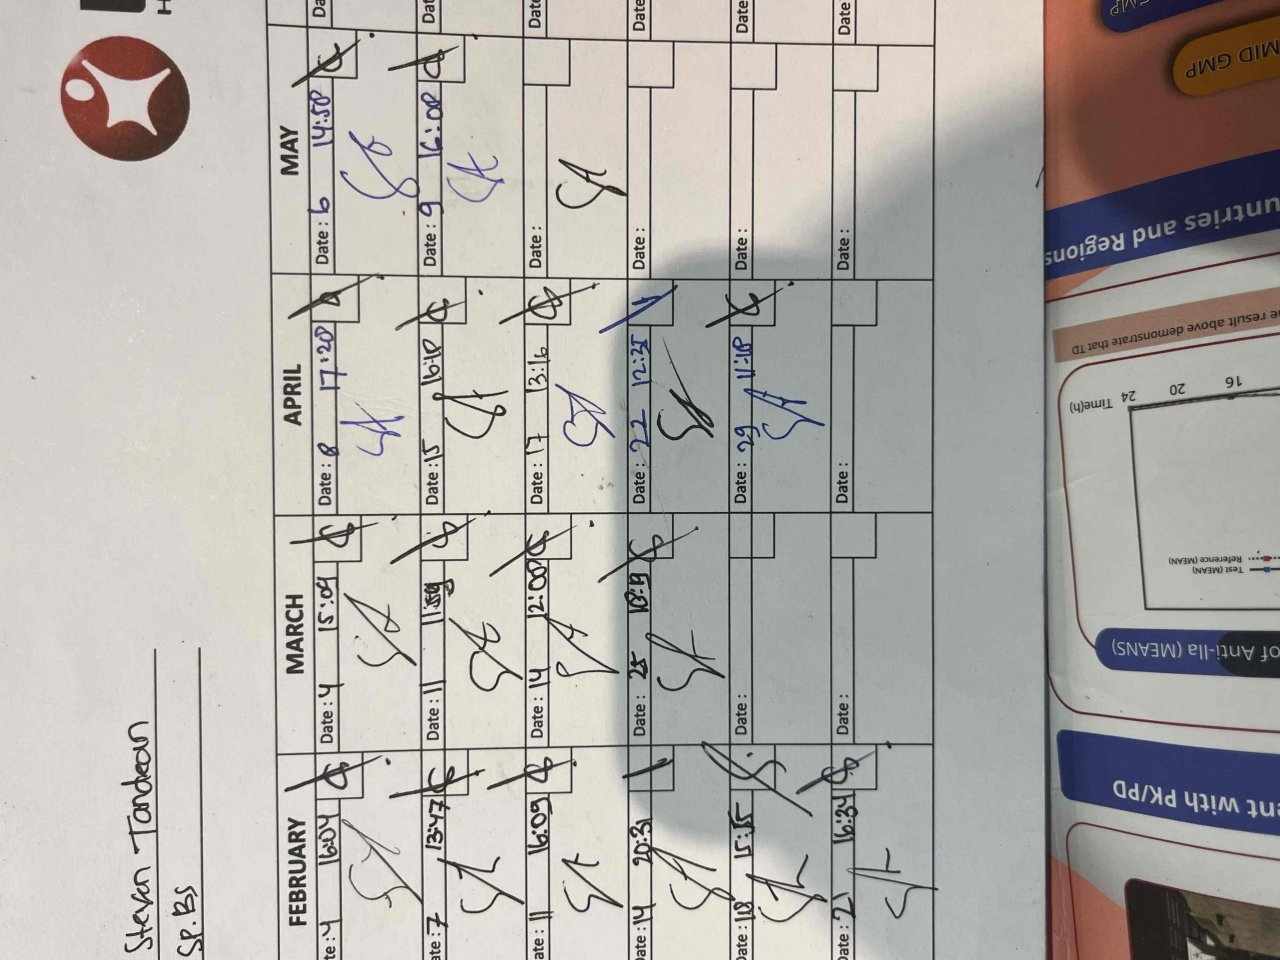 Stevan Tandean
SP. BS
FEBRUARY
te: 4 16:04
te: 7 13:47
te: 11 16:09
Date: 14 20:31
Date: 18 15:15
Date: 21 16:34
MARCH
Date: 4 15:09
Date: 11 11:59
Date: 14 12:00
Date: 25
Date:
Date:
APRIL
Date: 8 17:20
Date: 15 16:10
Date: 17 13:16
Date: 22 12:35
Date: 29 11:10
Date:
MAY
Date: 6 14:50
Date: 9 16:00
Date:
Date:
Date:
Date:
Date
Date
Date
MID GMP
GMP
untries and Regions
e result above demonstrate that TD
Time(h) 24 20 16
Test (MEAN)
Reference (MEAN)
of Anti-IIa (MEANS)
ent with PK/PD